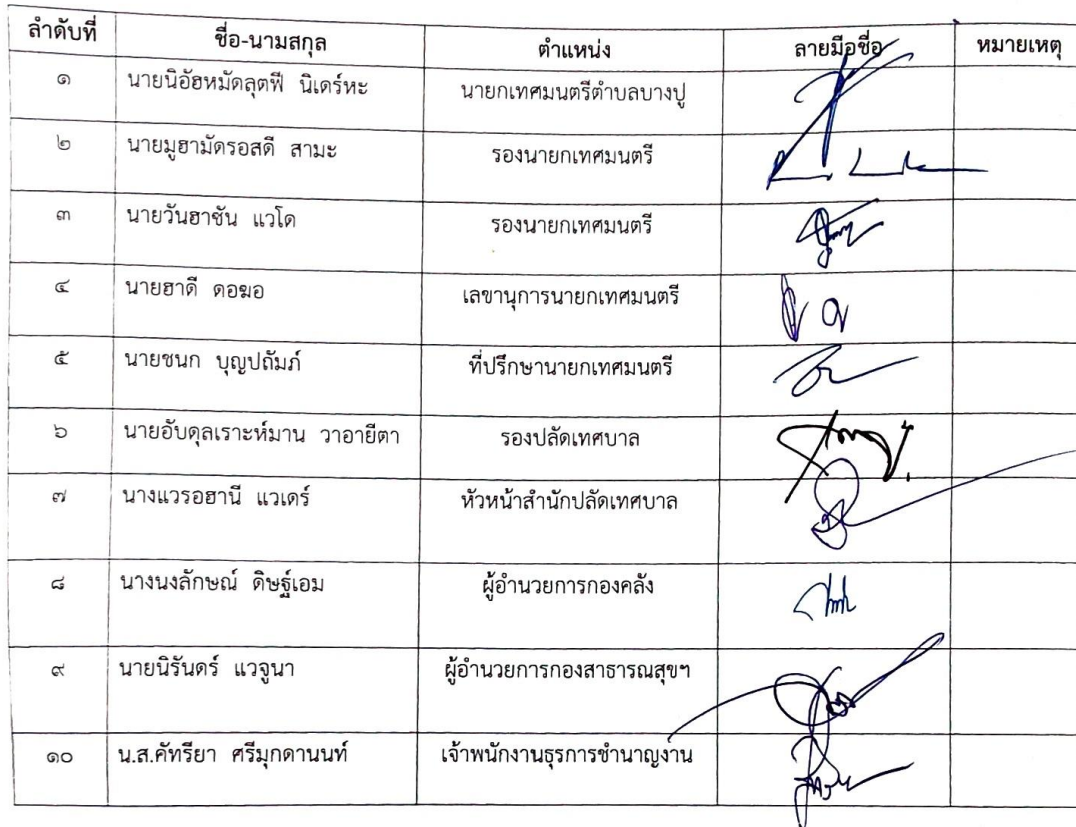 ลำดับที่ ชื่อ-นามสกุล ตำแหน่ง ลายมือชื่อ หมายเหตุ
๑ นายนิอัฮหมัดลุตฟี นิเดร์หะ นายกเทศมนตรีตำบลบางปู
๒ นายมูฮามัดรอสดี สามะ รองนายกเทศมนตรี
๓ นายวันฮาซัน แวโด รองนายกเทศมนตรี
๔ นายฮาดี ดอฆอ เลขานุการนายกเทศมนตรี
๕ นายชนก บุญปถัมภ์ ที่ปรึกษานายกเทศมนตรี
๖ นายอับดุลเราะห์มาน วาอายีตา รองปลัดเทศบาล
๗ นางแวรอฮานี แวเดร์ หัวหน้าสำนักปลัดเทศบาล
๘ นางนงลักษณ์ ดิษฐ์เอม ผู้อำนวยการกองคลัง
๙ นายนิรันดร์ แวจูนา ผู้อำนวยการกองสาธารณสุขฯ
๑๐ น.ส.คัทรียา ศรีมุกดานนท์ เจ้าพนักงานธุรการชำนาญงาน